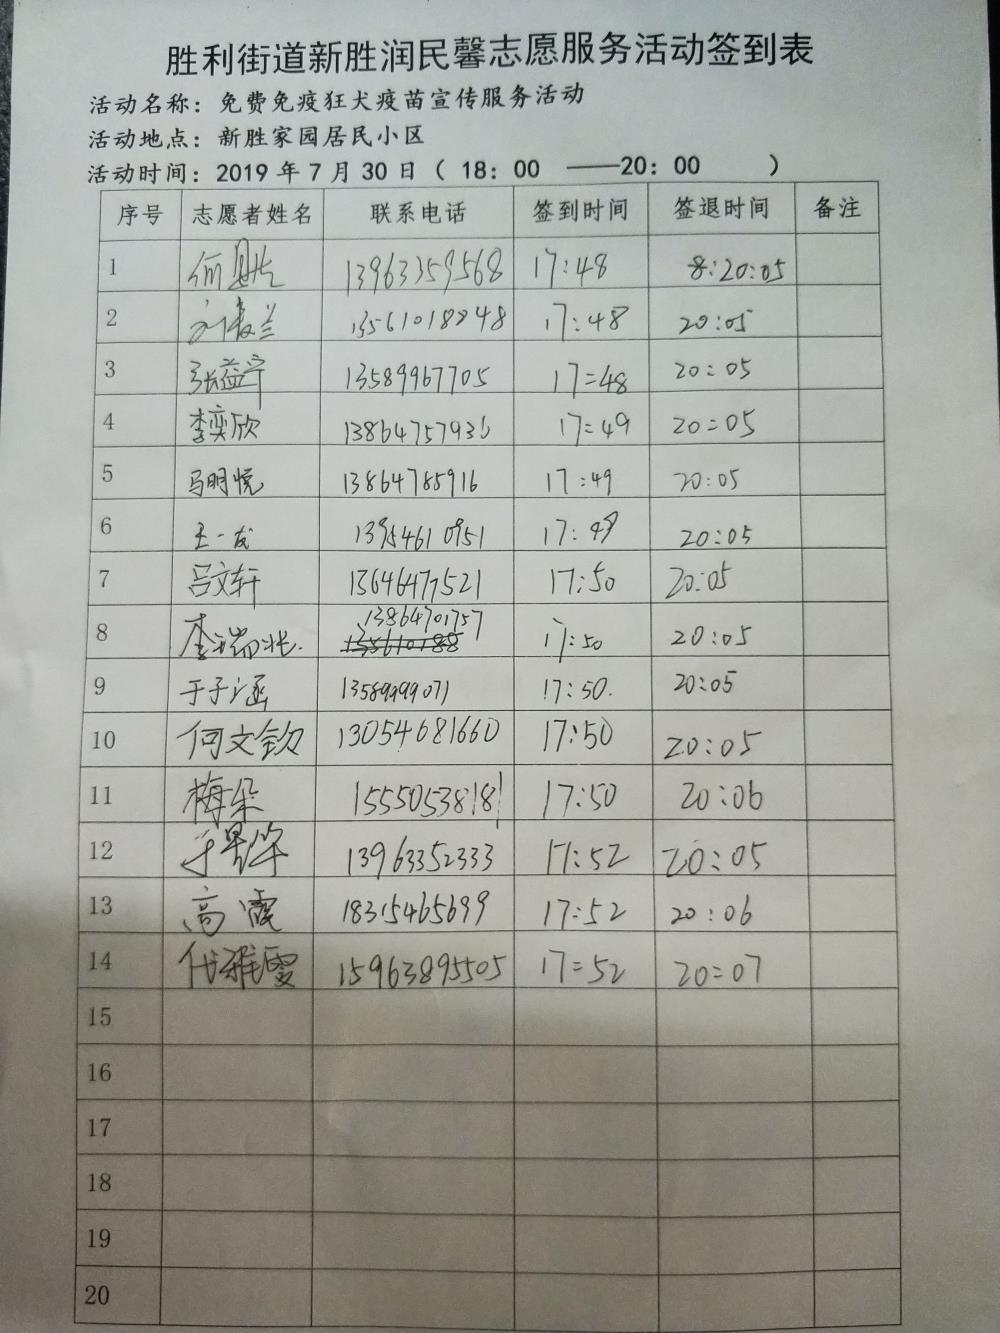 胜利街道新胜润民馨志愿服务活动签到表
活动名称：免费免疫狂犬疫苗宣传服务活动
活动地点：新胜家园居民小区
活动时间：2019 年 7 月 30 日（ 18：00 ——20：00 ）
序号 志愿者姓名 联系电话 签到时间 签退时间 备注
1 13963359568 17:48 8:20:05
2 13561018848 17:48 20:05
3 张益宁 13589967705 17:48 20:05
4 李奕欣 13864757936 17:49 20:05
5 马明悦 13864785916 17:49 20:05
6 王一 13954610951 17:49 20:05
7 吕文轩 13646477521 17:50 20:05
8 李瑞 13864701757 17:50 20:05
9 于子涵 13589999071 17:50. 20:05
10 何文钦 13054681660 17:50 20:05
11 梅朵 15550538181 17:50 20:06
12 13963352333 17:52 20:05
13 高霞 18315465699 17:52 20:06
14 代雅雯 15963895505 17:52 20:07
15
16
17
18
19
20